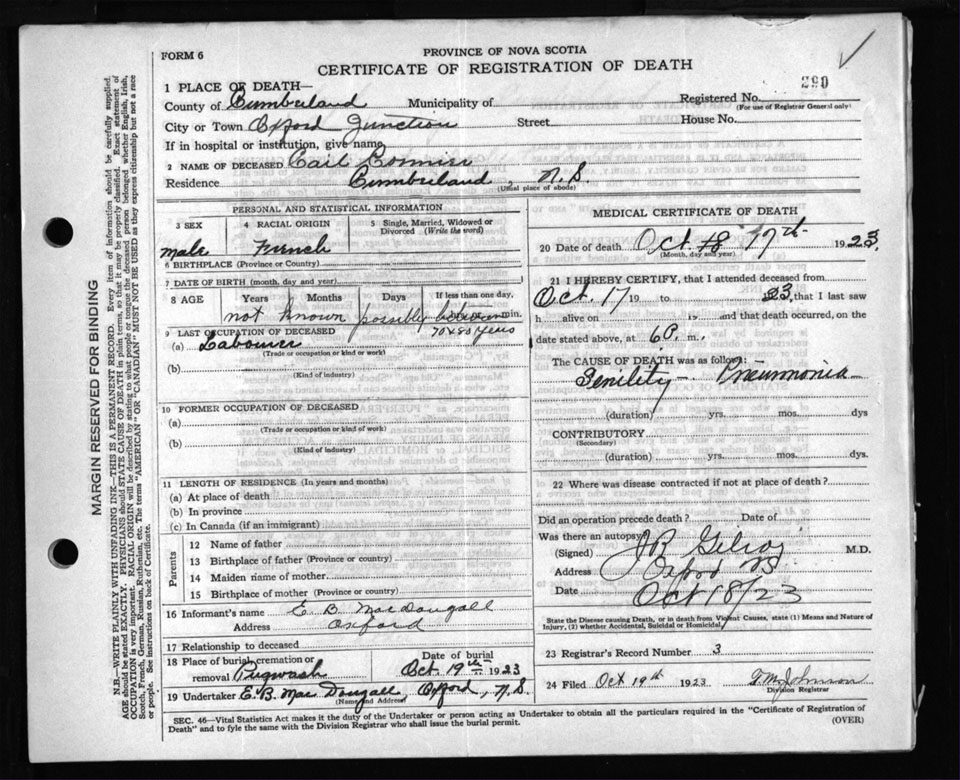 FORM 6
PROVINCE OF NOVA SCOTIA
CERTIFICATE OF REGISTRATION OF DEATH
290
1 PLACE OF DEATH—
County of Cumberland Municipality of Registered No.
(For use of Registrar General only)
City or Town Oxford Junction Street House No.
If in hospital or institution, give name
2 NAME OF DECEASED
Residence Cumberland, N.S.
(Usual place of abode)
PERSONAL AND STATISTICAL INFORMATION
3 SEX 4 RACIAL ORIGIN 5 Single, Married, Widowed or Divorced (Write the word)
male French
6 BIRTHPLACE (Province or Country)
7 DATE OF BIRTH (month, day and year)
8 AGE Years Months Days If less than one day,
not known possibly between min.
70 x 80 years
9 LAST OCCUPATION OF DECEASED
(a) Labourer
(Trade or occupation or kind or work)
(b)
(Kind of industry)
10 FORMER OCCUPATION OF DECEASED
(a)
(Trade or occupation or kind of work)
(b)
(Kind of industry)
11 LENGTH OF RESIDENCE (In years and months)
(a) At place of death
(b) In province
(c) In Canada (if an immigrant)
Parents
12 Name of father
13 Birthplace of father (Province or country)
14 Maiden name of mother
15 Birthplace of mother (Province or country)
16 Informant's name E. B. MacDougall
Address Oxford
17 Relationship to deceased
18 Place of burial, cremation or removal Pugwash Date of burial Oct. 19th 1923
19 Undertaker E. B. MacDougall, Oxford, N.S.
(Name and Address)
MEDICAL CERTIFICATE OF DEATH
20 Date of death Oct. 18 17th 1923
(Month, day and year)
21 I HEREBY CERTIFY, that I attended deceased from
Oct. 17 19 to 23, that I last saw
h alive on 19 and that death occurred, on
date stated above, at 6 P. m.,
The CAUSE OF DEATH was as follows:
Senility — Pneumonia
(duration) yrs. mos. dys
CONTRIBUTORY
(Secondary)
(duration) yrs. mos. dys.
22 Where was disease contracted if not at place of death?
Did an operation precede death? Date of
Was there an autopsy
(Signed) J R Gilroy M.D.
Address Oxford NS
Date Oct 18/23
State the Disease causing Death, or in death from Violent Causes, state (1) Means and Nature of Injury, (2) whether Accidental, Suicidal or Homicidal.
23 Registrar's Record Number 3
24 Filed Oct 19th 1923 Johnson
Division Registrar
SEC. 46—Vital Statistics Act makes it the duty of the Undertaker or person acting as Undertaker to obtain all the particulars required in the "Certificate of Registration of Death" and to fyle the same with the Division Registrar who shall issue the burial permit.
(OVER)
MARGIN RESERVED FOR BINDING
N.B.—WRITE PLAINLY WITH UNFADING INK—THIS IS A PERMANENT RECORD. Every item of information should be carefully supplied.
AGE should be stated EXACTLY. PHYSICIANS should STATE CAUSE OF DEATH in plain terms, so that it may be properly classified. Exact statement of
OCCUPATION is very important. RACIAL ORIGIN will be described by stating to what people or tongue the deceased person belonged whether English, Irish,
Scotch, French, German, Russian, Ruthenian, etc. The terms "AMERICAN" OR "CANADIAN" MUST NOT BE USED as they express citizenship but not a race
or people. See instructions on back of Certificate.